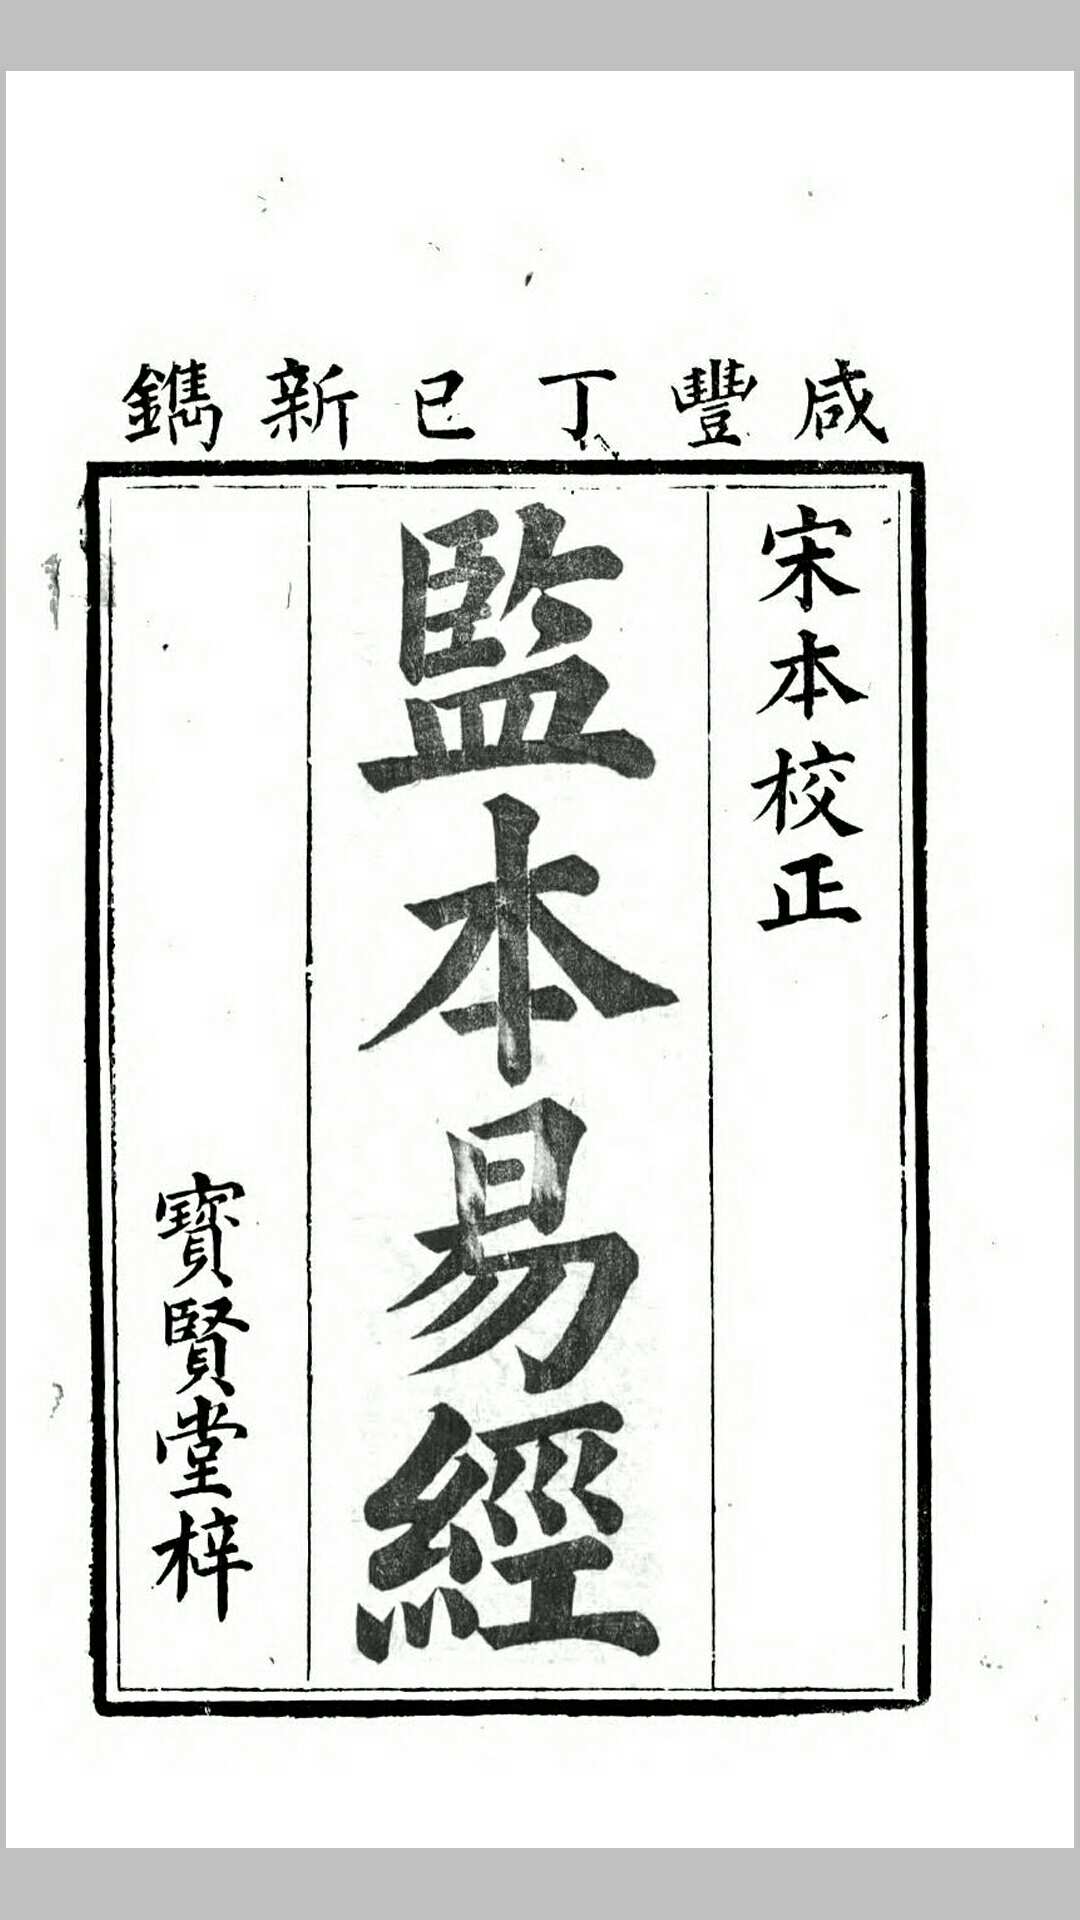 咸豐丁巳新鐫
宋本校正
監本易經
寳賢堂梓